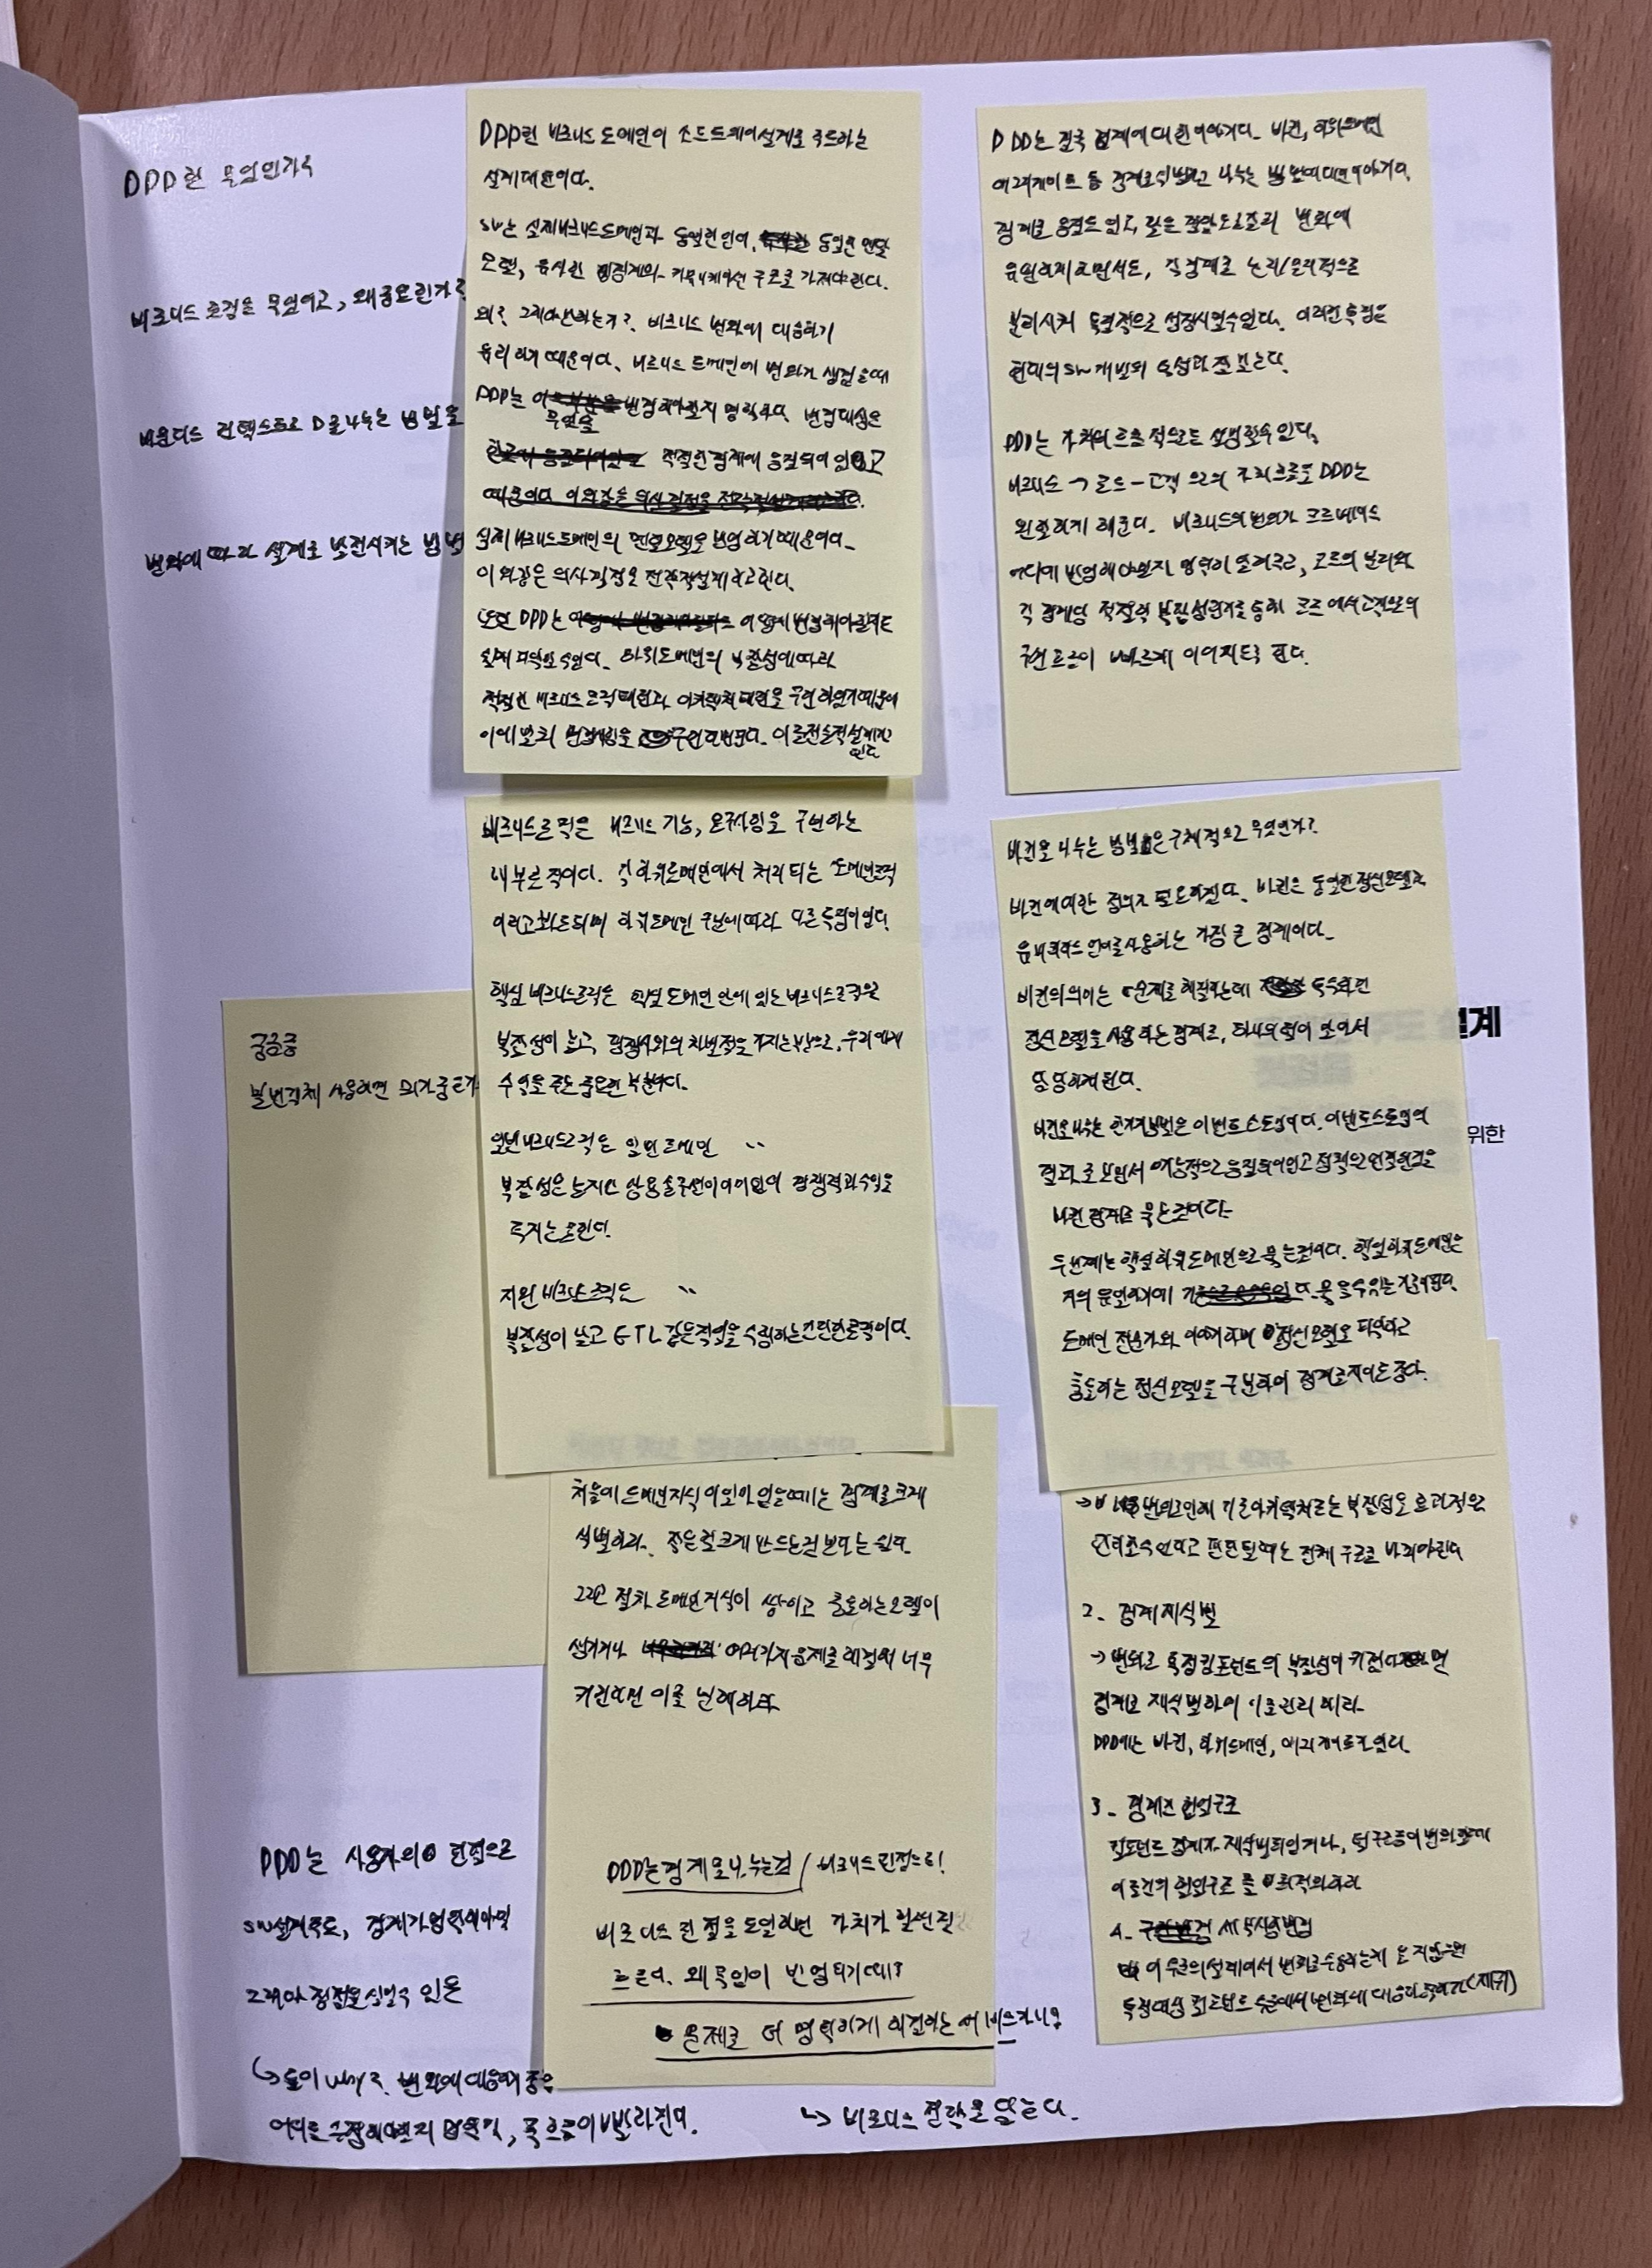 DDD란 무엇인가?
비즈니스 로직은 무엇이고, 왜 중요한가?
바운디드 컨텍스트로 나누는 방법은
변화에 따라 설계를 발전시키는 방법
DDD란 비즈니스 도메인이 소프트웨어 설계를 주도하는
설계 이다.
SW는 실제 비즈니스 도메인과 동일한 언어, 동일한 멘탈
모델, 유사한 경계와 커뮤니케이션 구조를 가져야 한다.
왜? 그래야 하는가? 비즈니스 변화에 대응하기
유리하기 때문이다. 비즈니스 도메인에 변화가 생겼을때
DDD는 무엇을 변경해야할지 명확하다. 변경대상은
적절한 경계에 응집되어 있고
실제 비즈니스 도메인의 멘탈모델을 반영하기 때문이다.
이 와같은 의사결정을 전략적설계라고 한다.
또한 DDD는 어떻게 변경해야할지도
쉽게 파악할 수 있다. 하위도메인의 복잡성에 따라
적절한 비즈니스 로직 패턴과 아키텍처 패턴을 구현하였기 때문에
이에 맞춰 변경사항을 구현하면 된다. 이를 전술적설계라고
한다
DDD는 결국 경계에 대한 이야기다. 바컨, 하위도메인
어그리게이트 등 경계를 식별하고 나누는 방법에 대한 이야기다.
경계로 응집도 있고, 낮은 결합도로 변화에
유연하게 하면서도, 각 경계를 논리/물리적으로
분리시켜 독립적으로 성장시킬수있다. 이러한 특징은
현대의 SW개발의 특성과 잘 맞는다.
DDD는 가치의 흐름적으로도 설명할수 있다.
비즈니스 → 코드 → 고객 으로의 가치흐름을 DDD는
원활하게 해준다. 비즈니스의 변화가 코드베이스
어디에 반영해야할지 명확히 알려주고, 코드의 분리와
각 경계당 적절한 복잡성 을 통해 코드에서 고객으로의
구현 흐름이 빠르게 이어지도록 한다.
비즈니스로직은 비즈니스 기능, 요구사항을 구현하는
내부로직이다. 각 하위도메인에서 처리되는 도메인로직
이라고 하위도메인 구분에 따라 다른 특징이 있다.
핵심 비즈니스로직은 핵심 도메인 안에 있는 비즈니스로직으로
복잡성이 높고 경쟁사와의 차별점을 가지는 부분으로, 우리에게
수익을 주는 중요한 부분이다.
일반 비즈니스로직은 일반 도메인 〃
복잡성은 높지만 상용 솔루션이 이미 있어 경쟁력과 수익을
주지는 못한다.
지원 비즈니스로직은 〃
복잡성이 낮고 ETL 같은 작업을 수행하는 간단한 로직이다.
바컨을 나누는 방법은 구체적으로 무엇인가?
바컨에 대한 정의가 필요하겠다. 바컨은 동일한 정신모델과
유비쿼터스 언어를 사용하는 가장 큰 경계이다.
바컨의 의미는 문제를 해결하는데 특수화된
정신모델을 사용하는 경계로, 하나의 팀이 맡아서
담당하게 된다.
바컨을 나누는 한가지 방법은 이벤트스토밍이다. 이벤트스토밍의
결과를 보면서 기능적으로 응집되어있고
바컨 경계로 묶는것이다.
두번째는 핵심하위도메인으로 묶는것이다. 핵심하위도메인은
도메인 전문가와 이야기하며 정신모델을 파악하고
충돌하는 정신모델을 구분하여 경계로 지어도 좋다.
궁금증
불변객체 사용하면 뭐가 좋은가
설계
위한
처음에 도메인지식이 없을때에는 경계를 크게
식별하라. 작은걸 크게 만드는것 보다는 쉽다.
그리고 점차 도메인지식이 쌓이고 충돌하는 모델이
생기거나 여러가지 문제를 해결해 너무
커진다면 이를 분해하라
→ 변화로인해 기존아키텍처로는 복잡성을 효과적으로
관리할수없다고 판단될때는 전체 구조를 바꿔야한다
2. 경계 재식별
→ 변화로 특정 컴포넌트의 복잡성이 커졌다면
경계를 재식별하여 이를 관리해라.
DDD에는 바컨, 하위도메인, 어그리게이트가 있다.
3. 경계간 협업구조
컴포넌트 경계가 재식별되었거나, 팀구조등이 변화할때
이들간의 협업구조를 최적화하라
4. 세부사항변경
DDD는 사용자의 관점으로
SW설계주도, 경계가 명확해야함
그래야 장점을 살릴수 있음
↳ 둘이 why? 변화에 대응하기 좋음
어디를 수정해야할지 명확, 흐름이 빨라진다.
DDD는 경계로 나누는것 / 비즈니스 관점으로!
비즈니스 관점을 도입하면 가치가 훨씬 잘
흐른다. 왜 목적이 반영되기 때문?
문제를 더 명확하게 해결하는 서비스가 나옴
↳ 비즈니스 전략을 담는다.